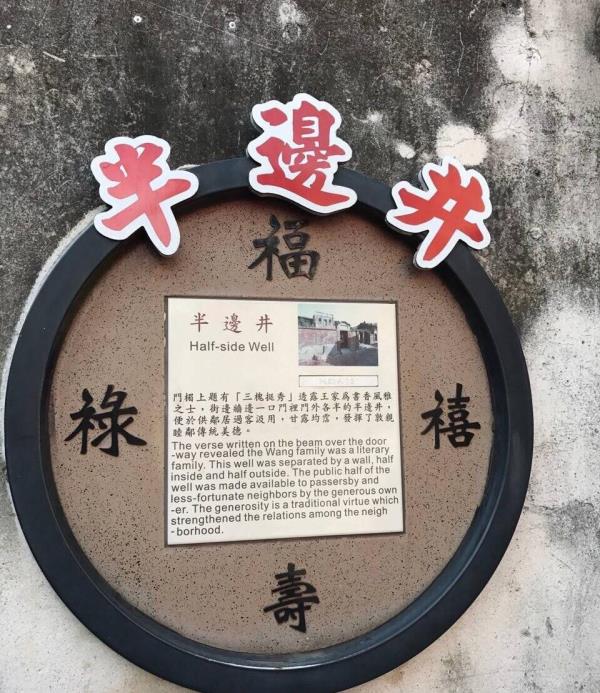 半邊井
福
祿
禧
半邊井
Half-side Well
門楣上題有「三槐挺秀」透露王家為書香風雅
之士，街邊牆邊一口門裡門外各半的半邊井，
便於供鄰居過客汲用，甘露均霑，發揮了敦親
睦鄰傳統美德。
The verse written on the beam over the door
-way revealed the Wang family was a literary
family. This well was separated by a wall, half
inside and half outside. The public half of the
well was made available to passersby and
less-fortunate neighbors by the generous own
-er. The generosity is a traditional virtue which
strengthened the relations among the neigh
-borhood.
壽